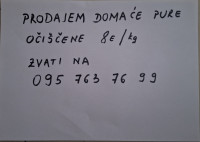 PRODAJEM DOMAĆE PURE
OČIŠČENE 8E/kg
ZVATI NA
095 763 76 99